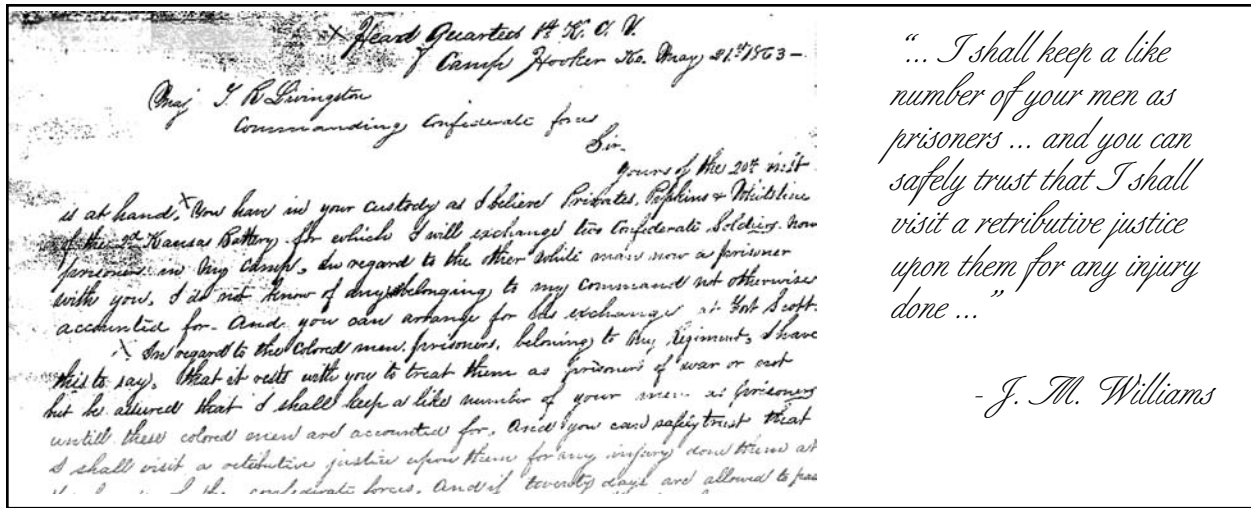 Head Quarters 1st K. C. V.
Camp Hooker Ks. May 21st 1863 -
Maj T R Livingston
Commanding Confederate forces
Sir.
Yours of the 20th inst
is at hand, You have in your custody as I believe Privates, Pipkins & Whitstine
of the 2d Kansas Battery, for which I will exchange two Confederate Soldiers now
prisoners in my camp. In regard to the other white man now a prisoner
with you, I do not know of any belonging to my command not otherwise
accounted for. And you can arrange for his exchange at Fort Scott.
In regard to the Colored men, prisoners, beloning to my Regiment, I have
this to say, that it rests with you to treat them as prisoners of war or not
but be assured that I shall keep a like number of your men as prisoners
untill these colored men are accounted for, And you can safely trust that
I shall visit a retributive justice upon them for any injury done them at
the hands of the confederate forces, And if twenty days are allowed to pass
“... I shall keep a like
number of your men as
prisoners ... and you can
safely trust that I shall
visit a retributive justice
upon them for any injury
done ...”
- J. M. Williams